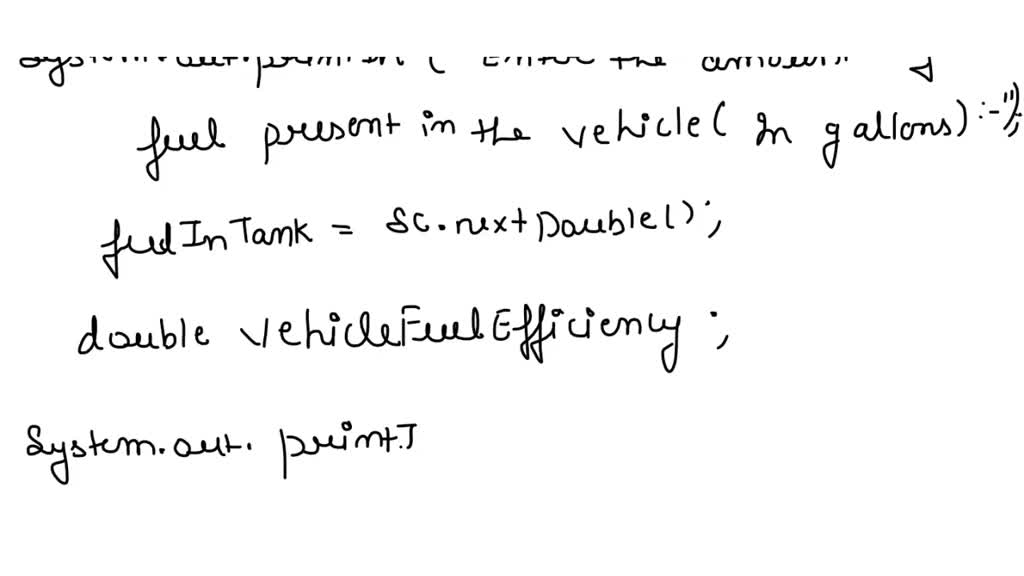 System.out.println( "Enter the amount of
fuel present in the vehicle( In gallons) :-");
fuelInTank = Sc.nextDouble();
double vehicleFuelEfficiency ;
System.out. print